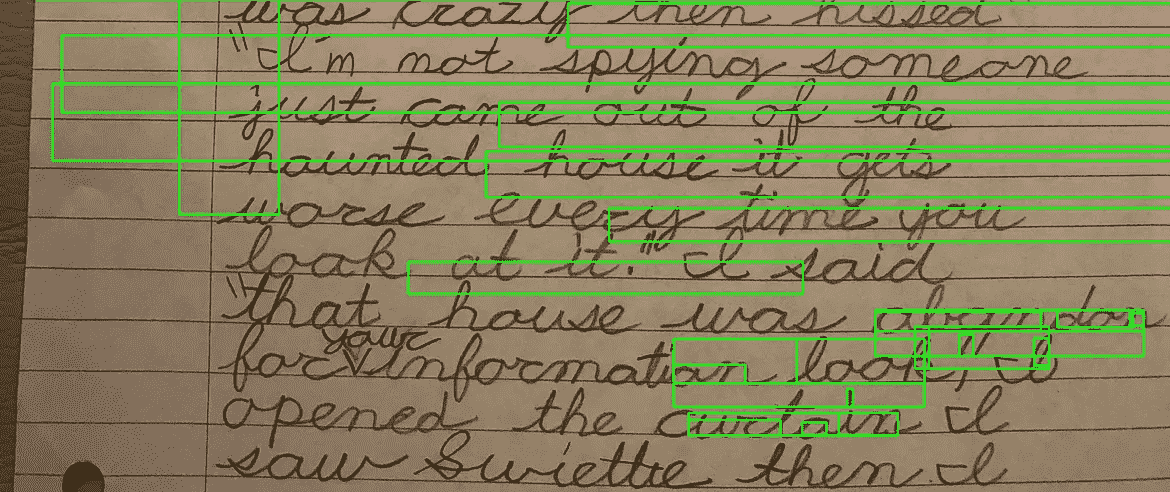 was crazy then hissed
"I'm not spying someone
just came out of the
haunted house it gets
worse every time you
look at it." I said
"that house was abandon
for your information look," I
opened the curtain I
saw Swiettie then I